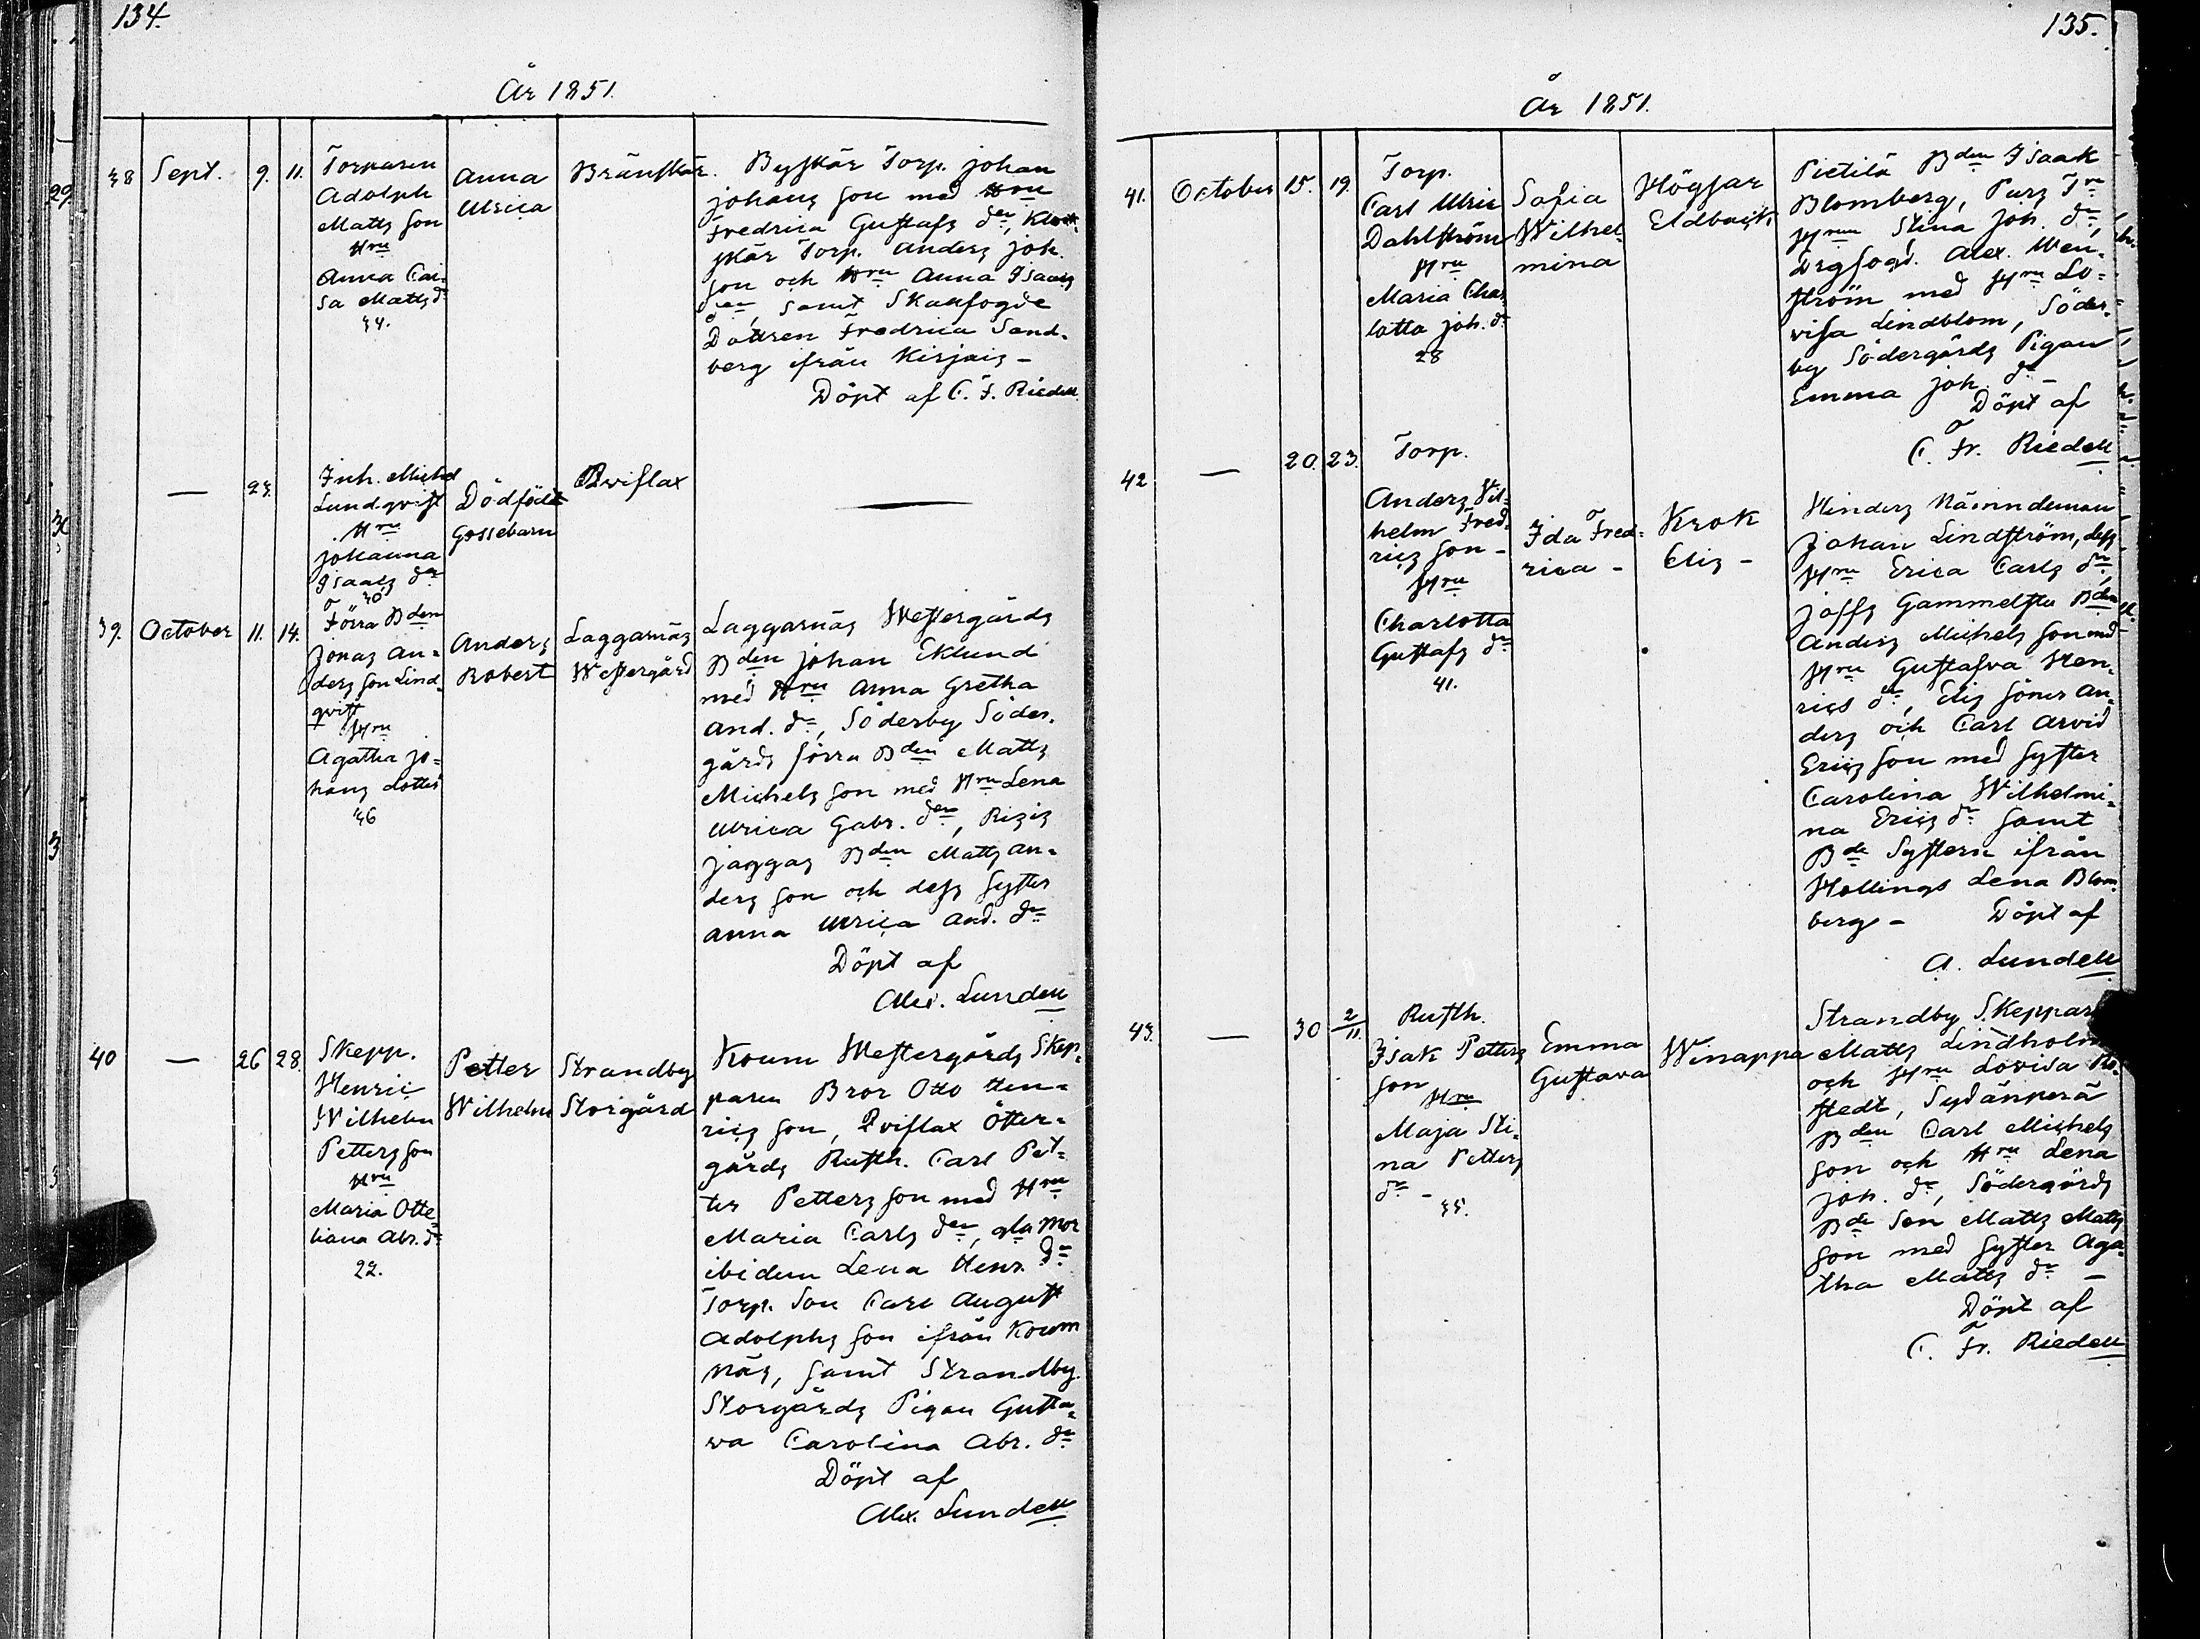 134.
År 1851.
38 Sept. 9. 11.
Torparen
Adolph
Matts son
Hru
Anna Cai-
sa Matts dr
34.
Anna
Ulrica
Bränskär.
Byskär Torp. Johan
Johans son med Hru
Fredrica Gustafs der, Klock-
skär Torp. Anders Joh.
son och Hru Anna Isaacs
der, samt Skaufogde
Dottren Fredrica Sand-
berg ifrån Kirjais -
Döpt af C. F. Riedell
— 23.
Inh. Michel
Lundqvist
Hru
Johanna
Isaacs dr
30
Dödfödt
Gossebarn
Qviflax
39. October 11. 14.
Förra Bden
Jonas An-
ders son Lind-
qvist
Hru
Agatha Jo-
hans dotter
46
Anders
Robert
Laggarnäs
Westergård
Laggarnäs Westergårds
Bden Johan Eklund
med Hru Anna Gretha
And. dr, Söderby Söder-
gårds förra Bden Matts
Michels son med Hru Lena
Ulrica Gabr. der, Rizis
Jaggas Bden Matts An-
ders son och dess syster
Anna Ulrica And. dr
Döpt af
Alex. Lundell
40 — 26 28
Skepp.
Henric
Wilhelm
Petters son
Hru
Maria Otte-
liana Abr. dr
22.
Petter
Wilhelm
Strandby
Storgård
Koum Westergårds Skep-
paren Bror Otto Hen-
rics son, Qviflax Öfter-
gårds Rusth. Carl Pet-
ter Petters son med Hru
Maria Carls der, gla mor
ibidem Lena Henr. dr
Torp. Son Carl August
Adolphs son ifrån Koum
näs, samt Strandby
Storgårds Pigan Gusta-
va Carolina Abr. dr
Döpt af
Alex. Lundell
135.
År 1851.
41. October 15. 19.
Torp.
Carl Ulric
Dahlström
Hru
Maria Char-
lotta Joh. dr
28
Sofia
Wilhel-
mina
Högsar
Eldback
Pietilä Bden Isaak
Blomberg,
Hrun Stina Joh. dr,
Drgfogd. Alex. Wen-
ström med Hru Lo-
visa Lindblom, Söder-
by Södergårds Pigan
Emma Joh. dr -
Döpt af
C. Fr. Riedell
42 — 20. 23.
Torp.
Anders Vil-
helm Fred-
rics son -
Hru
Charlotta
Gustafs dr
41.
Ida Fred-
rica -
Krok
Elis -
Hinders Nämndeman
Johan Lindström, dess
Hru Erica Carls dr,
Joffs Gammelstu Bden
Anders Michels son med
Hru Gustafva Hen-
rics dr, Elis söner An-
ders och Carl Arvid
Erics son med syster
Carolina Wilhelmi-
na Erics dr samt
Bde Systern ifrån
Hellings Lena Blom-
berg - Döpt af
A. Lundell
43. — 30 2/11.
Rusth.
Isak Petters
son
Hru
Maja Sti-
na Petters
dr -
35.
Emma
Gustava
Winappa
Strandby Skeppar
Matts Lindholm
och Hru Lovisa
stedt, Sydänperä
Bden Carl Michels
son och Hru Lena
Joh. dr, Södergårds
Bde Son Matts Matts
son med syster Aga-
tha Matts dr -
Döpt af
C. Fr. Riedell